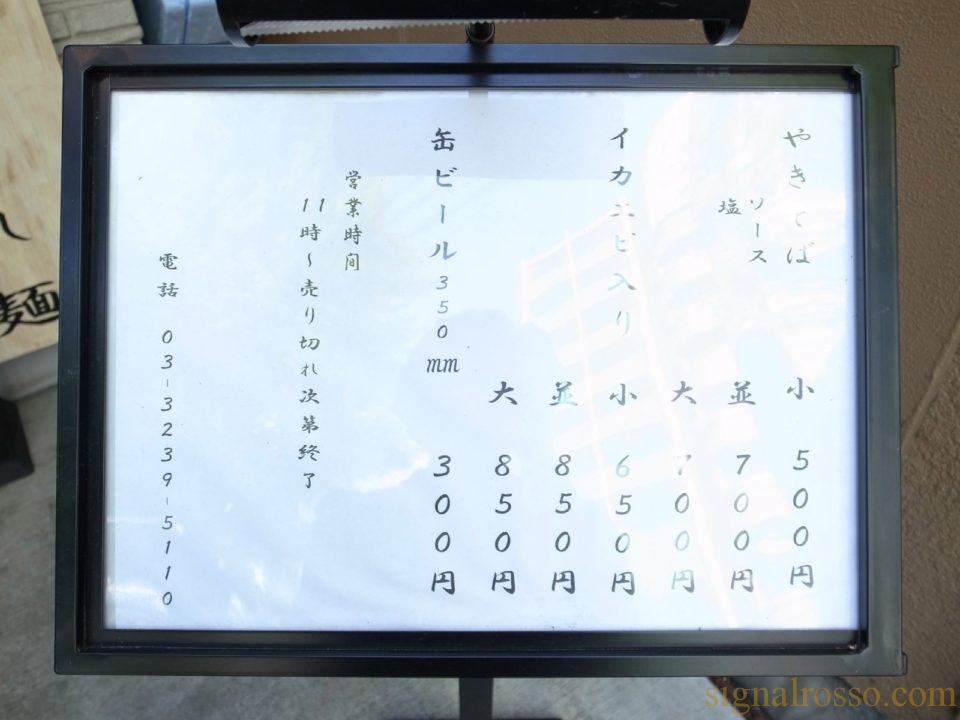 やきそば
ソース
塩
小 500円
並 700円
大 700円
イカエビ入り
小 650円
並 850円
大 850円
缶ビール350mm 300円
営業時間
11時～売り切れ次第終了
電話 03-3239-5110
麺
signalrosso.com